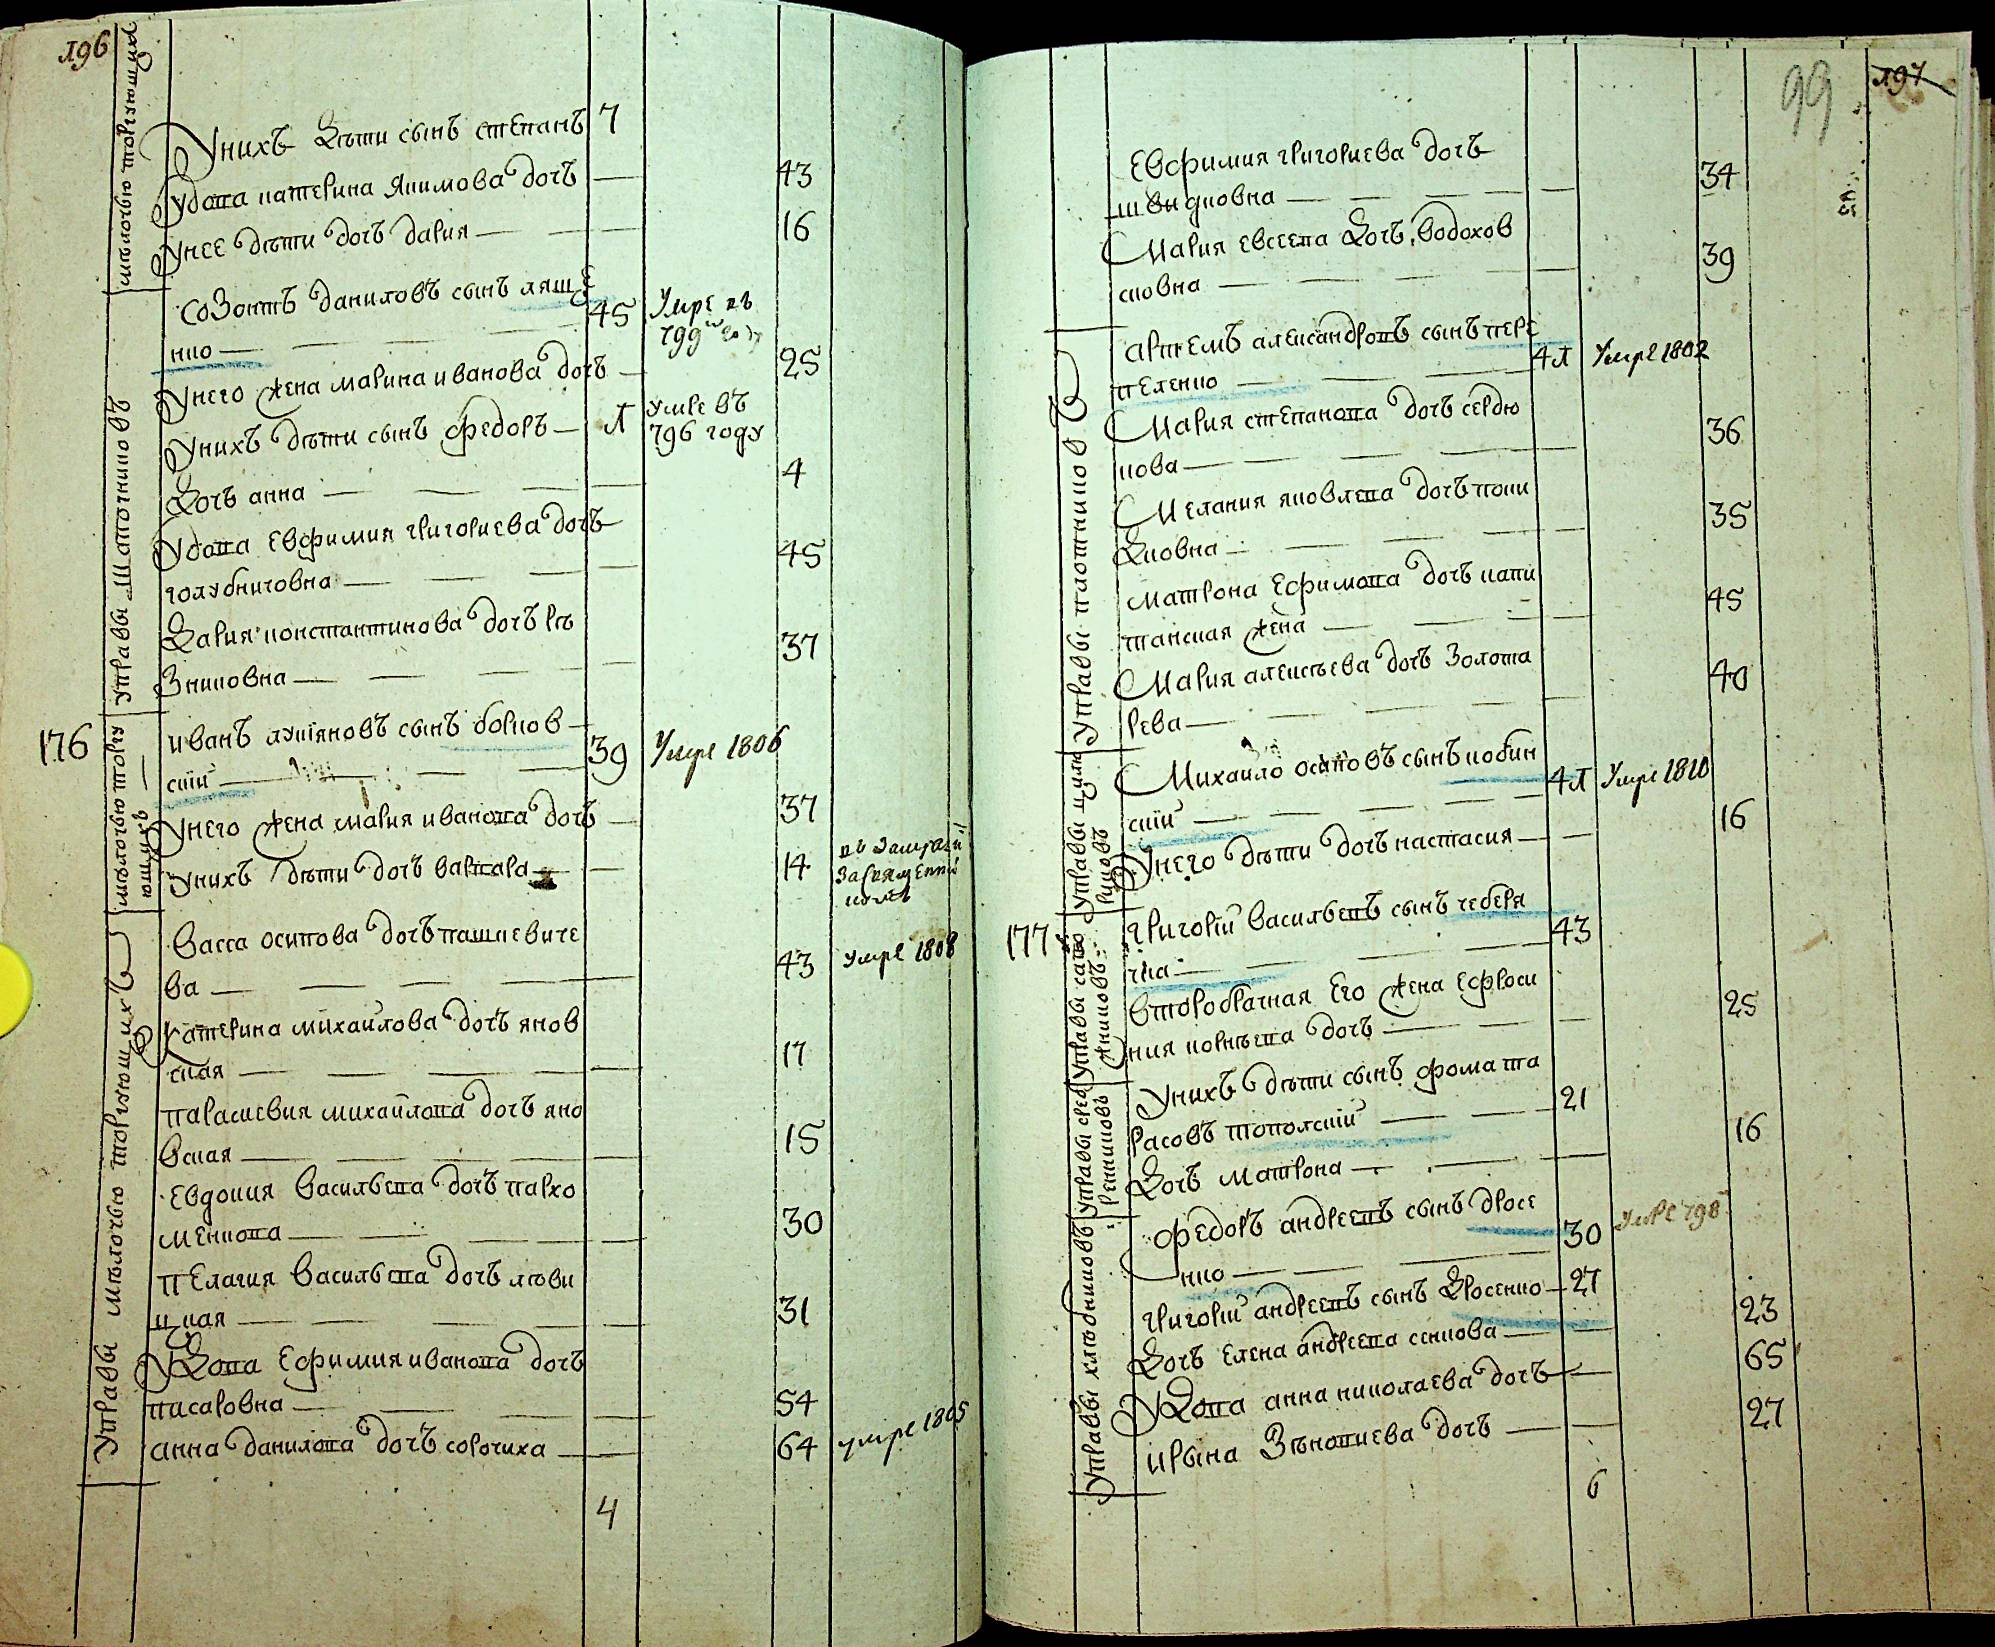 196
мѣлочью торгующихъ
Унихъ дѣти сынъ степанъ 7
Удова катерина Якимова дочь 43
Унее дѣти дочь дария 16
Созонтъ даниловъ сынъ ляще
нко 45 Умре въ
799м году
Унего жена марина иванова дочь 25
Унихъ дѣти сынъ федоръ Л умре въ
796 году
дочь анна 4
Управы Шапочниковъ
Удова Евфимия григориева дочь
голубничовна 45
дария константинова дочь рѣ
зниковна 37
176
мѣлочью торгу
ющихъ
иванъ лукіяновъ сынъ борков
скій 39 Умре 1806
Унего жена мария иванова дочь 37
Унихъ дѣти дочь варвара 14
Управы мѣлочью торгующихъ
васса осипова дочь пашкевиче
ва 43 умре 1808
катерина михайлова дочь янов
ская 17
параскевия михайлова дочь яно
вская 15
Евдокия васильева дочь пархо
менкова 30
пелагия васильева дочь люби
цкая 31
Удова Ефимия иванова дочь
писаровна 54
анна данилова дочь сорочиха 64 умре 1805
4
197
99
Евфимия григориева дочь
швидковна 34
Мария евсеева дочь водохов
сковна 39
Управы плотниковъ
артемъ александровъ сынъ пере
пеленко 4Л Умре 1802
Мария степанова дочь сердю
кова 36
Мелания яковлева дочь пони
дковна 35
матрона Ефимова дочь капи
танская жена 45
Мария алексѣева дочь золота
рева 40
Управы цилю
риковъ
Михайло осиповъ сынъ кобин
скій 4Л Умре 1810
Унего дѣти дочь настасия 16
177
Управы сапо
жниковъ
григорій васильевъ сынъ чеберя
чка 43
второбрачная его жена ефроси
ния корнѣева дочь 25
Управы сред
ренниковъ
Унихъ дѣти сынъ фома та
расовъ топольскій 21
дочь матрона 16
Управы хлѣбниковъ
федоръ андреевъ сынъ дросе
нко 30 умре 798
григорій андреевъ сынъ дросенко 27
дочь елена андреева сенкова 23
Удова анна николаева дочь 65
ирына Зѣновиева дочь 27
6